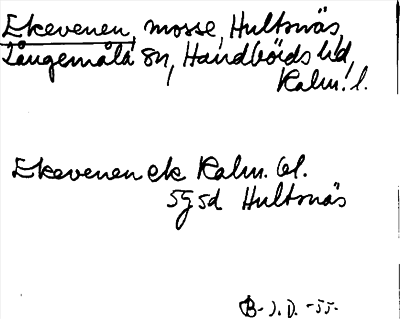 Ekevenen, mosse, Hultsnäs,
Långemåla sn, Handbörds hd,
Kalm. l.
Ekevenen ek Kalm. bl.
5g5d Hultsnäs
B-J.D. -55-